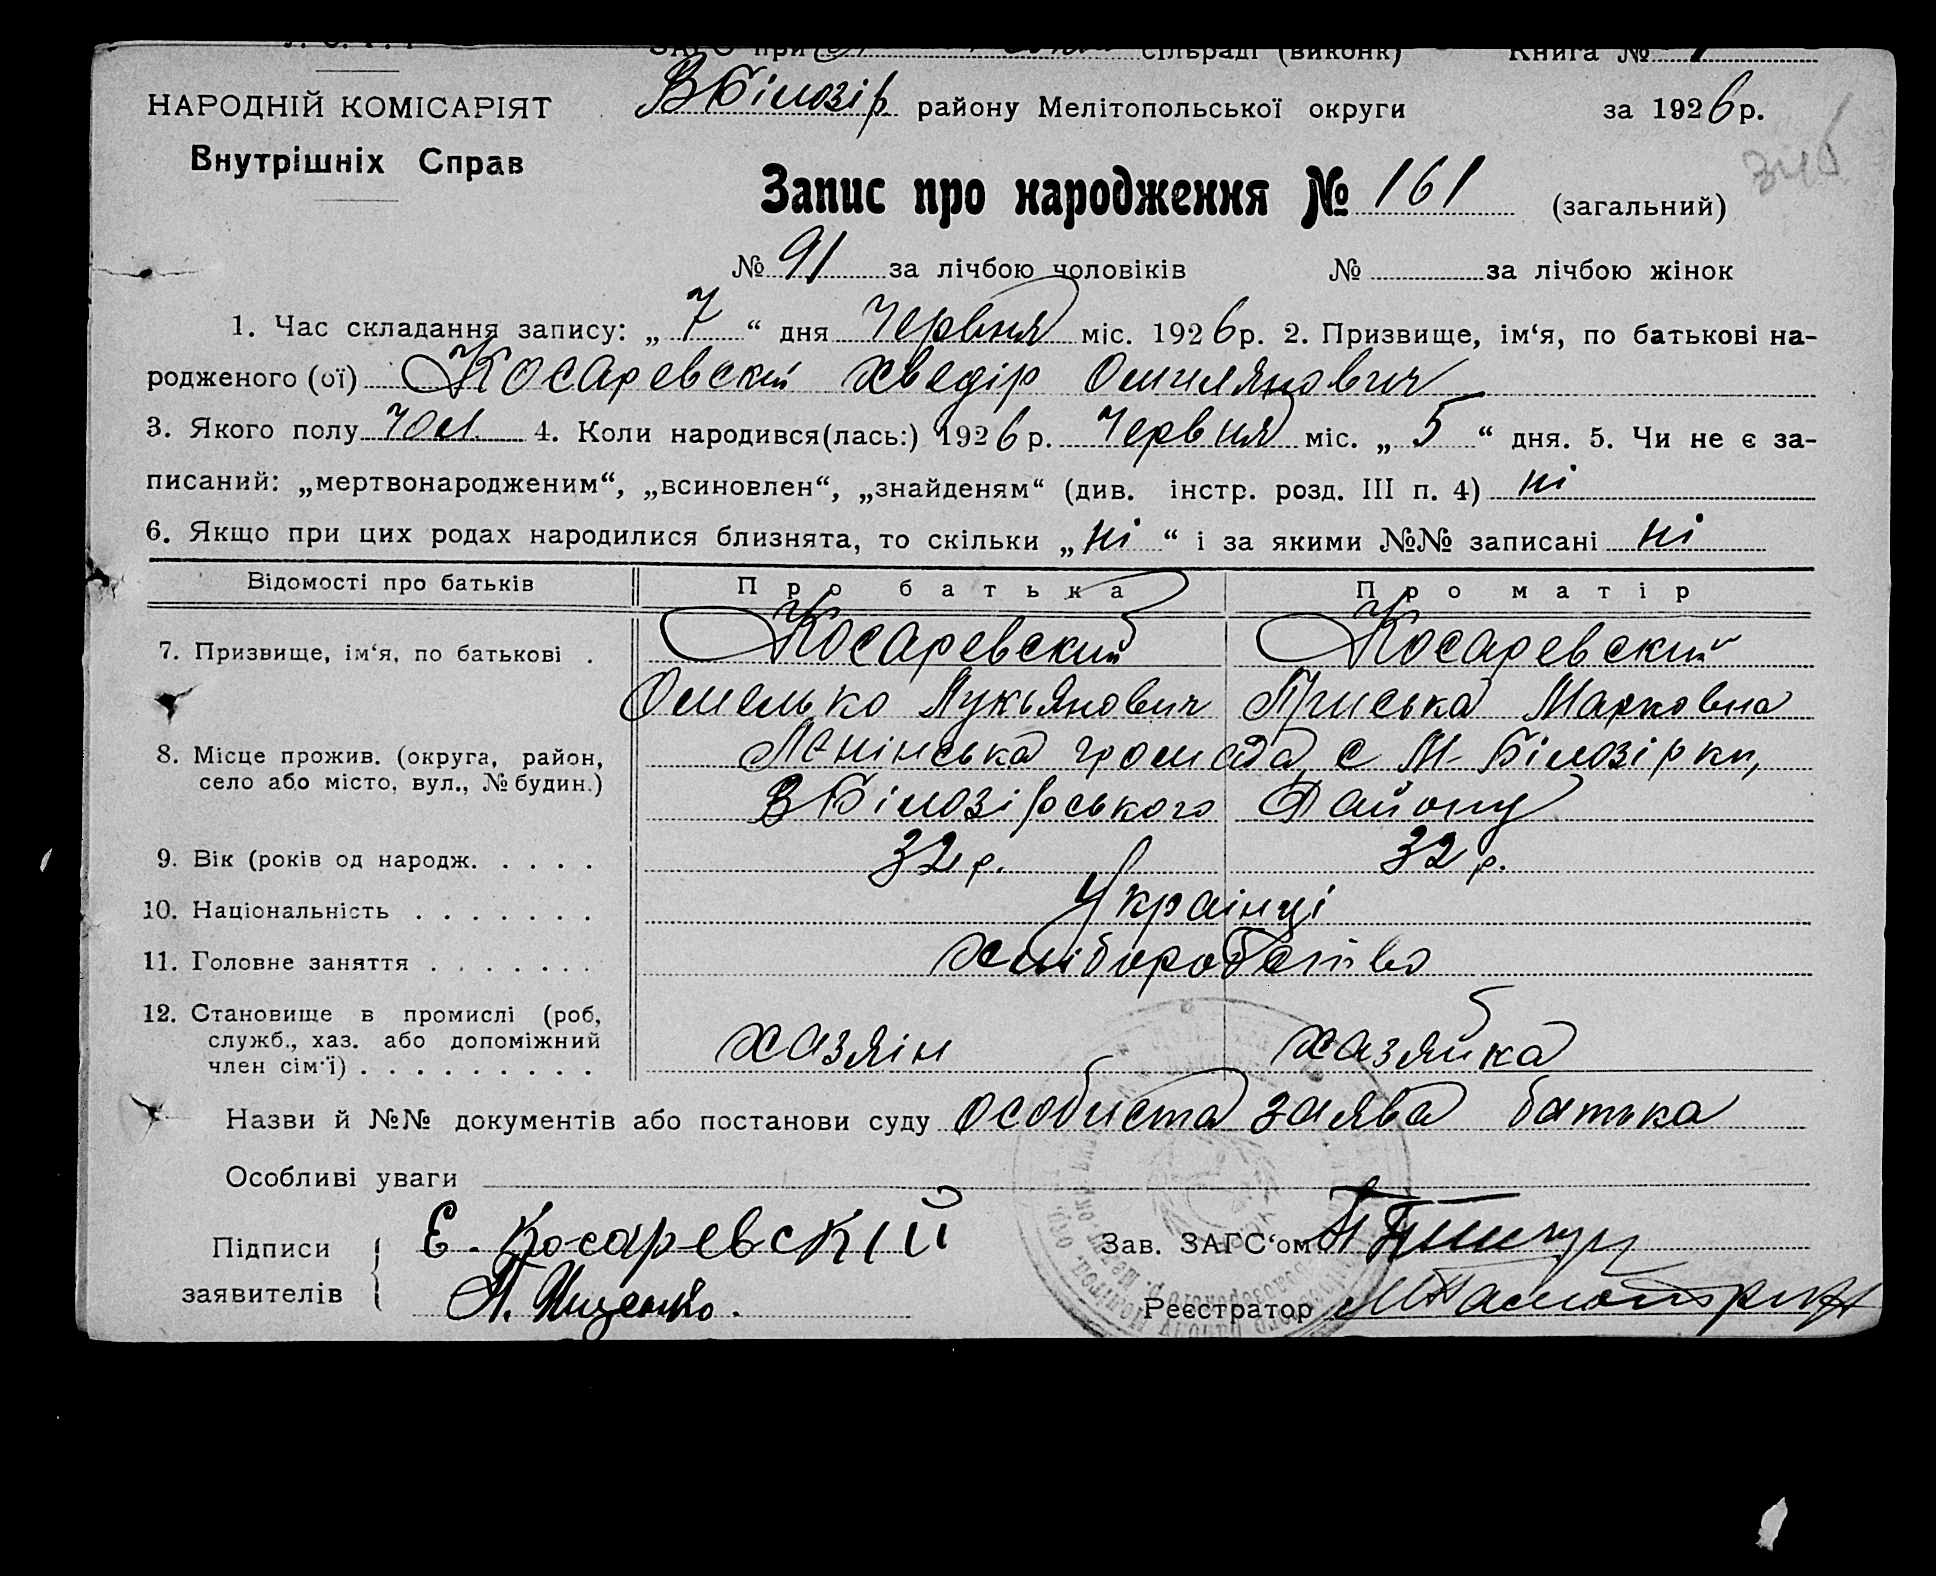 ЗАГС при сільраді (виконк) Книга №
НАРОДНІЙ КОМІСАРІЯТ
В Білозір. району Мелітопольської округи за 1926 р.
Внутрішніх Справ
Запис про народження № 161 (загальний)
№ 91 за лічбою чоловіків № за лічбою жінок
1. Час складання запису: „ 7 “ дня Червня міс. 1926 р. 2. Призвище, ім‘я, по батькові на-
родженого (ої) Косаревский Хведір Омилянович
3. Якого полу Чол. 4. Коли народився(лась:) 1926 р. Червня міс. „ 5 “ дня. 5. Чи не є за-
писаний: „мертвонародженим“, „всиновлен“, „знайденям“ (див. інстр. розд. III п. 4) ні
6. Якщо при цих родах народилися близнята, то скільки „ ні “ і за якими №№ записані ні
Відомості про батьків Про батька Про матір
7. Призвище, ім‘я, по батькові . Косаревский Косаревский
Омелько Лукьянович Приська Марковна
8. Місце прожив. (округа, район, Ленінська громада, с М-Білозірки,
село або місто, вул., № будин.)
В Білозірського Району
9. Вік (років од народж. . . . . 32 р. 32 р.
10. Національність . . . . . . . Українці
11. Головне заняття . . . . . . . хліборобство
12. Становище в промислі (роб,
служб., хаз. або допоміжний хазяін хазяйка
член сім‘ї) . . . . . . . . .
Назви й №№ документів або постанови суду особиста заява батька
Особливі уваги
Підписи Е. Косаревскій Зав. ЗАГС‘ом
заявителів П. Іщенко. Реєстратор